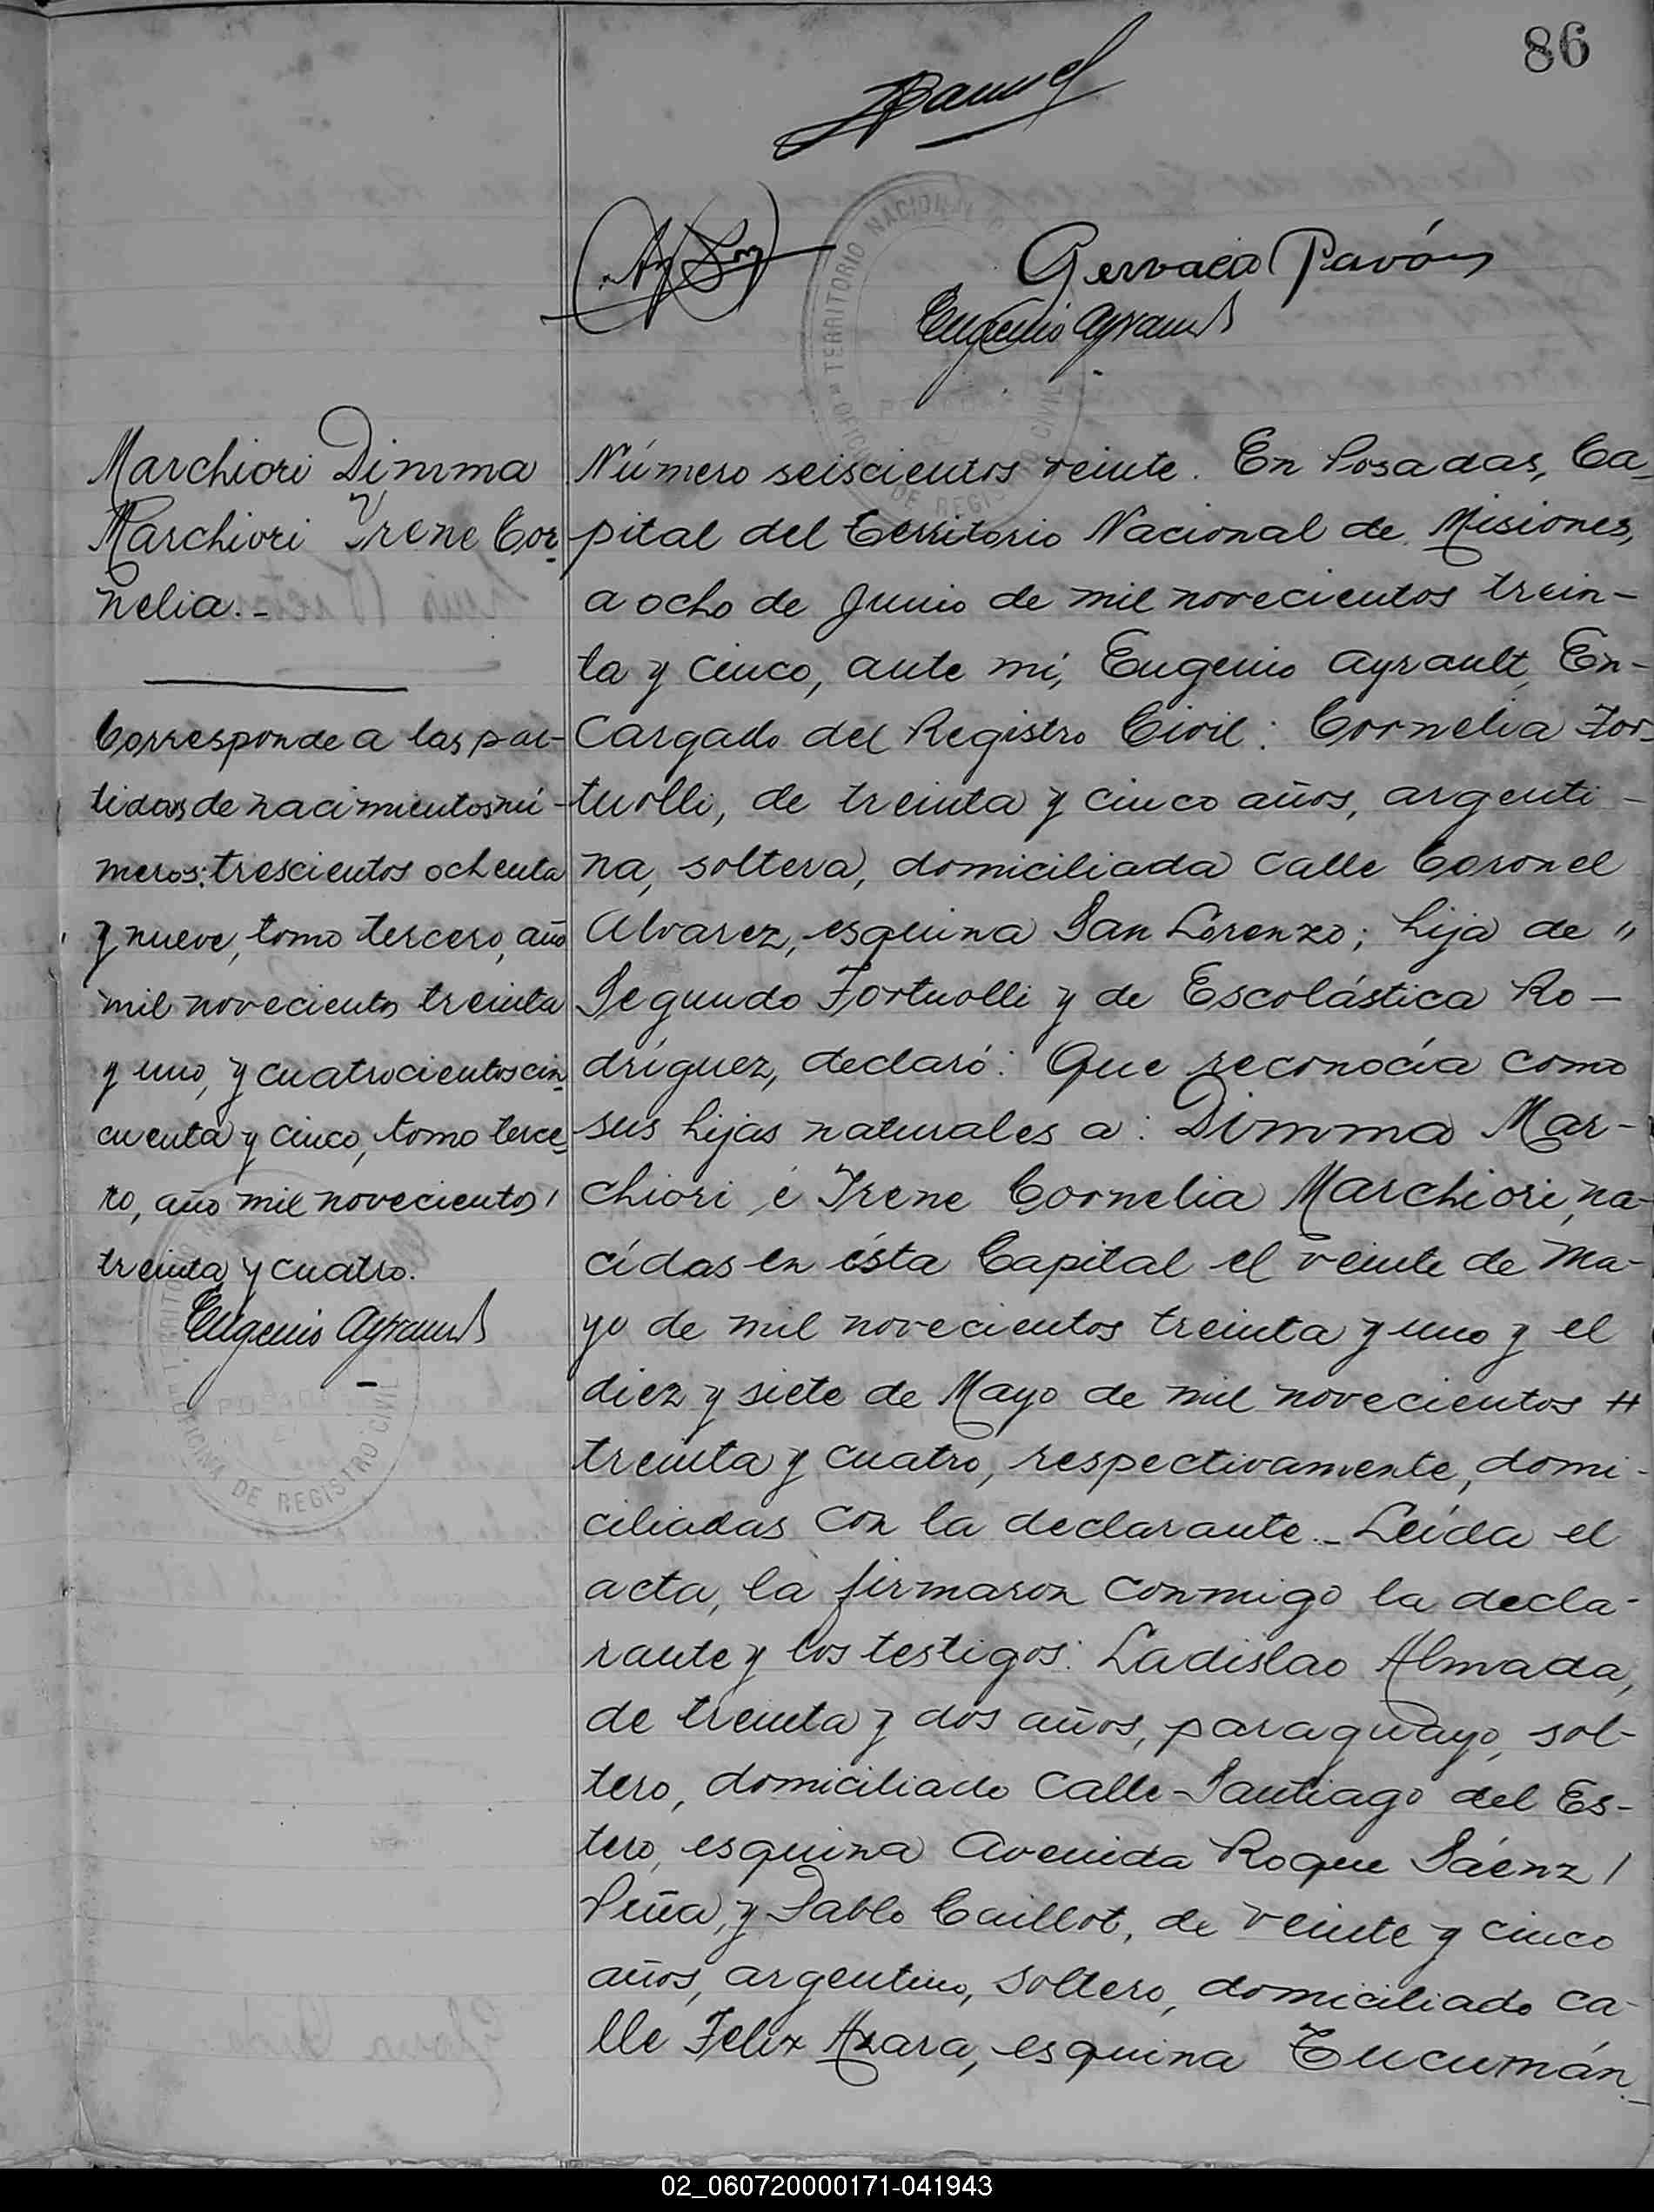 86
Gervacio Pavón
Eugenio Ayrault
TERRITORIO NACIONAL
OFICINA DE REGISTRO CIVIL
Marchiori Dimma
Marchiori Irene Cor-
nelia.-
Corresponde a las par-
tidas de nacimientos nú-
meros: trescientos ochenta
y nueve, tomo tercero, año
mil novecientos treinta
y uno, y cuatrocientos cin-
cuenta y cinco, tomo terce-
ro, año mil novecientos
treinta y cuatro.
Eugenio Ayrault
POSADAS
OFICINA DE REGISTRO CIVIL
Número seiscientos veinte. En Posadas, Ca-
pital del Territorio Nacional de Misiones,
a ocho de Junio de mil novecientos trein-
ta y cinco, ante mí, Eugenio Ayrault, En-
cargado del Registro Civil: Cornelia For-
tuolli, de treinta y cinco años, argenti-
na, soltera, domiciliada calle Coronel
Alvarez, esquina San Lorenzo; hija de "
Segundo Fortuolli y de Escolástica Ro-
dríguez, declaró: Que reconocía como
sus hijas naturales a: Dimma Mar-
chiori é Irene Cornelia Marchiori, na-
cidas en ésta Capital el veinte de Ma-
yo de mil novecientos treinta y uno y el
diez y siete de Mayo de mil novecientos
treinta y cuatro, respectivamente, domi-
ciliadas con la declarante.- Leída el
acta, la firmaron conmigo la decla-
rante y los testigos: Ladislao Almada,
de treinta y dos años, paraguayo, sol-
tero, domiciliado calle Santiago del Es-
tero, esquina Avenida Roque Sáenz /
Peña, y Pablo Caillot, de veinte y cinco
años, argentino, soltero, domiciliado ca-
lle Felix Azara, esquina Tucumán.-
02_060720000171-041943